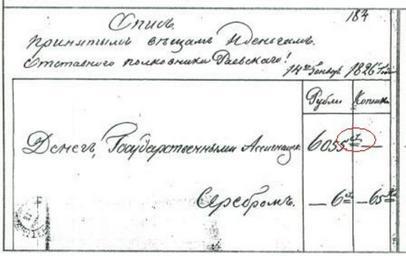 184
Опись
принятымъ вещамъ и деньгамъ
Отставнаго полковника Раевскаго!
14го Генваря 1826 года
Рубли Копѣйки
Денегъ, Государственными Ассигнац. 6055 —
Серебромъ. — 6 — 65